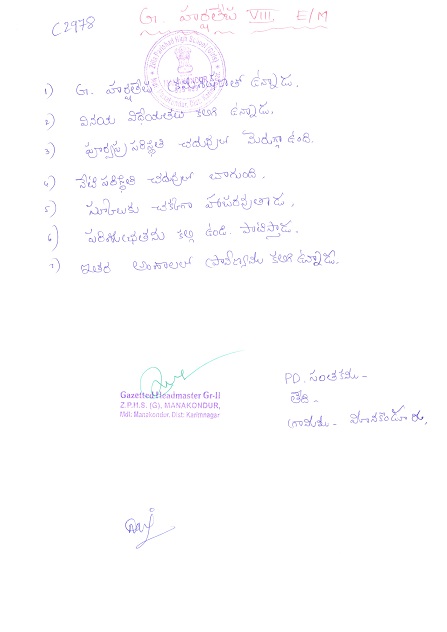 C2978
G. హర్షతేజ VIII, E/M
1) G. హర్షతేజ క్రమశిక్షణతో ఉన్నాడు.
2) వినయ విధేయతలు కలిగి ఉన్నాడు.
3) పూర్వపు పరిస్థితి చదువులో మెరుగ్గా ఉంది.
4) నేటి పరిస్థితి చదువులో బాగుంది.
5) స్కూలుకు చక్కగా హాజరవుతాడు.
6) పరిశుభ్రతను కల్గి ఉండి. పాటిస్తాడు.
7) ఇతర అంశాలలో ప్రావీణ్యము కలిగి ఉన్నాడు.
Gazetted Headmaster Gr-II
Z.P.H.S. (G), MANAKONDUR,
Mdl: Manakondur, Dist: Karimnagar
PD. సంతకము -
తేది -
గ్రామము - మానకొండూరు,